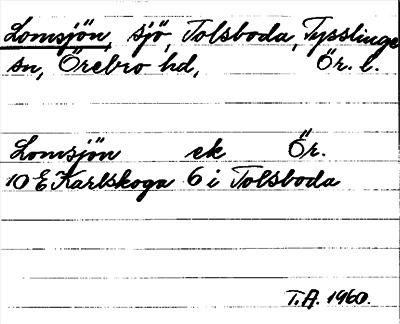 Lomsjön, sjö, Tolsboda, Tysslinge
sn, Örebro hd, Ör. l.
Lomsjön ek Ör.
10 E Karlskoga 6 i Tolsboda
T.A. 1960.